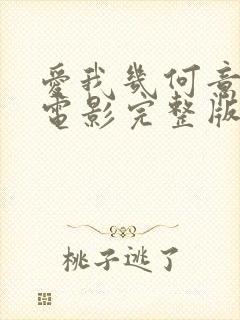 愛我幾何意
電影完整版
桃子逃了